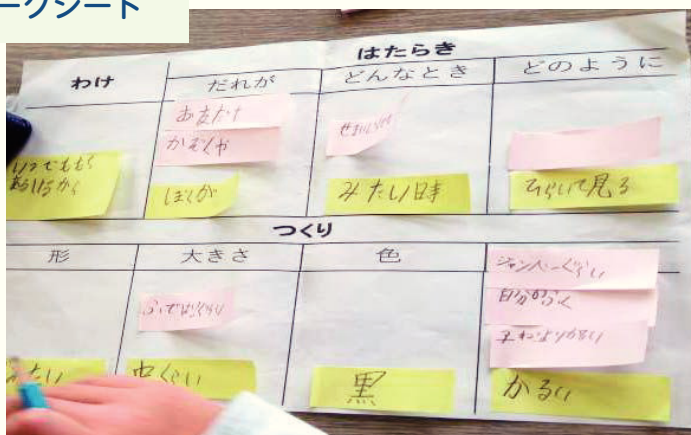 ークシート
はたらき
わけ
だれが
どんなとき
どのように
お友だち
かぞくや
ぼくが
みたい時
ひらいて見る
つくり
形
大きさ
色
ふでばこぐらい
中くらい
黒
ジャンパーぐらい
自分のふく
かるい